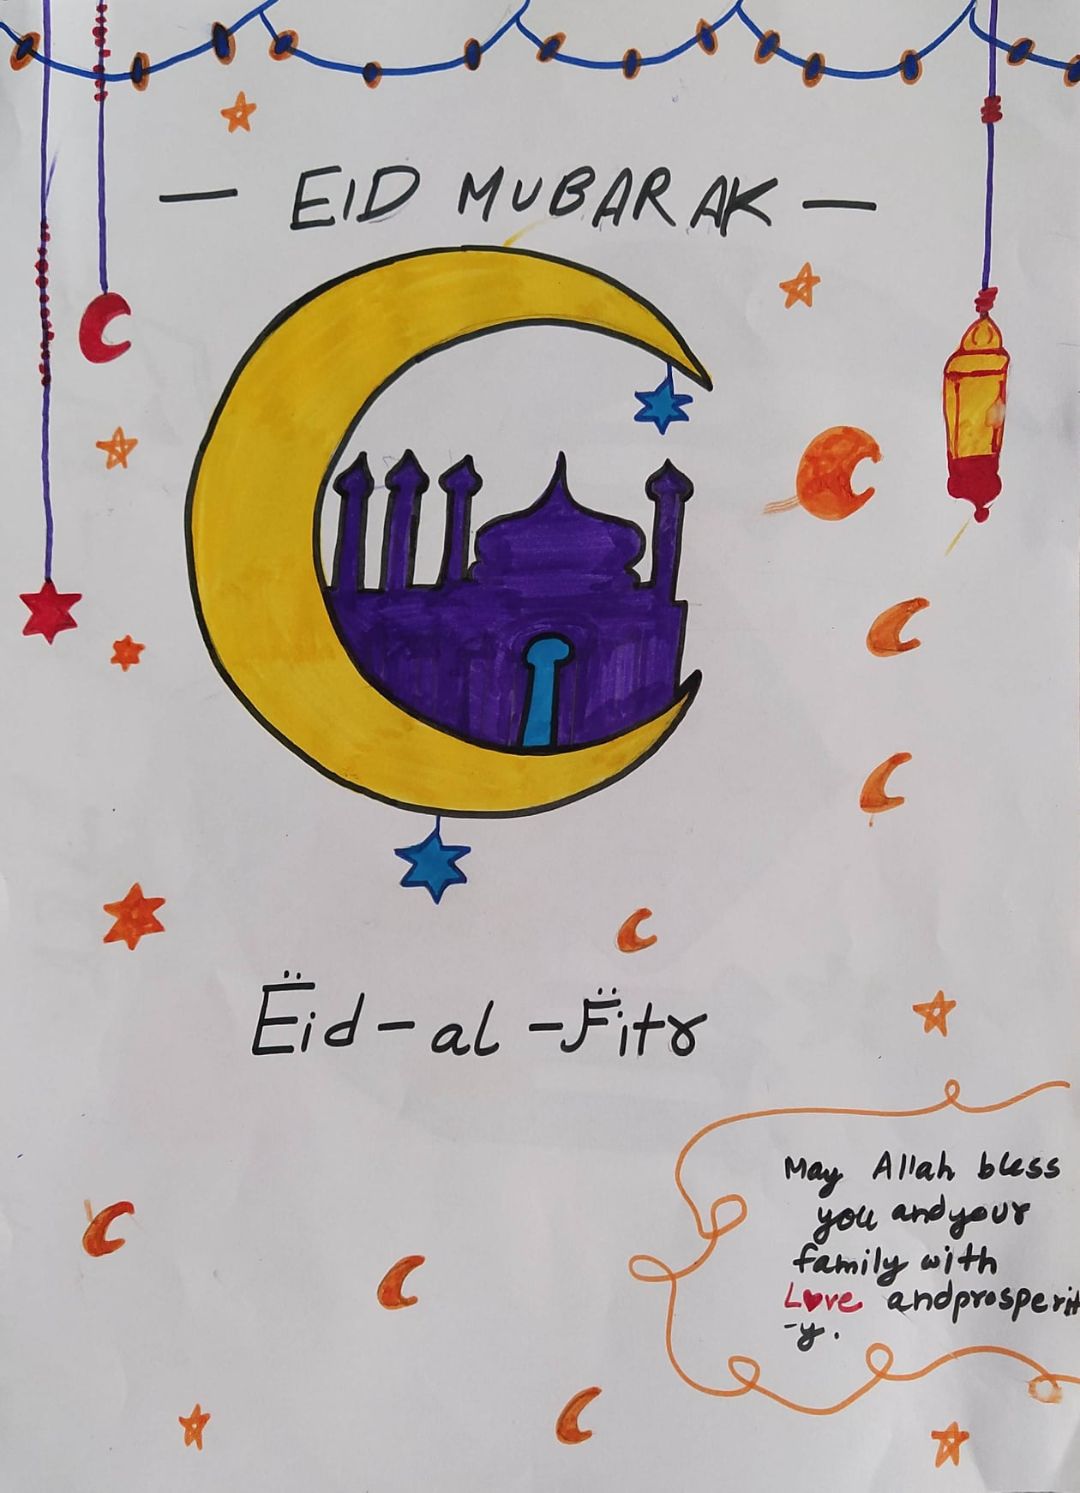 — EID MUBARAK —
Ëid-al-F̈itr
May Allah bless
you and your
family with
Love and prosperit
-y.